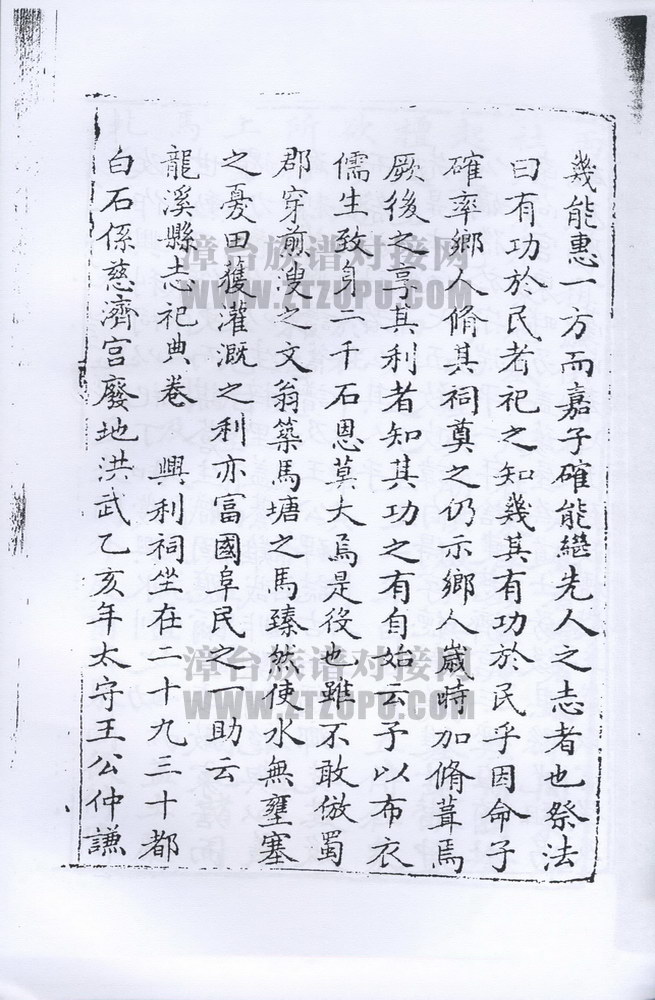 幾能惠一方而嘉子確能繼先人之志者也祭法
曰有功於民者祀之知幾其有功於民乎因命子
確率鄉人脩其祠奠之仍示鄉人嵗時加脩葺焉
厥後之享其利者知其功之有自始云予以布衣
儒生致身二千石恩莫大焉是役也雖不敢倣蜀
郡穿煎溲之文翁築馬塘之馬臻然使水無壅塞
之憂田獲灌溉之利亦富國阜民之一助云
龍溪縣志祀典卷 興利祠坐在二十九三十都
白石係慈濟宮廢地洪武乙亥年太守王公仲謙
漳台族谱对接网
WWW.ZTZUPU.COM
漳台族谱对接网
WWW.ZTZUPU.COM